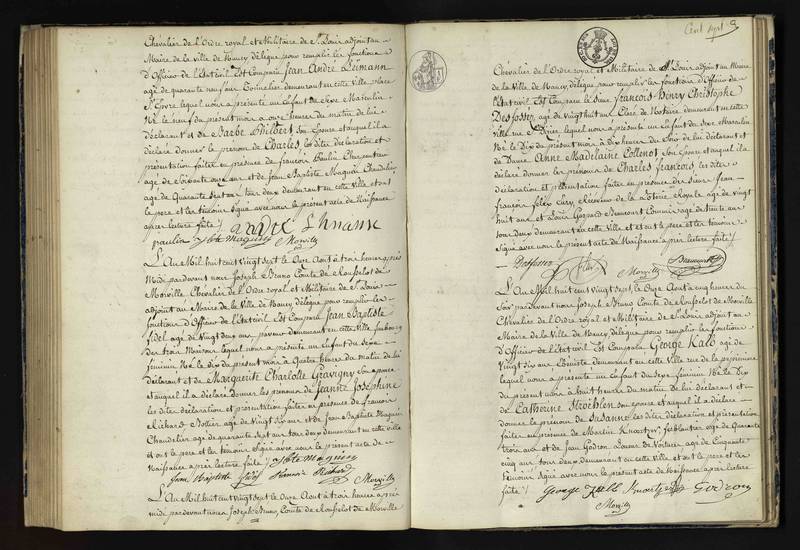 Chevalier de l'Ordre royal et Militaire de St Louis adjoint au
Maire de la ville de Nancy délégué pour remplir les fonctions
d'Officier de l'Etat civil Est Comparu Jean André Leimann
agé de quarante neuf ans Cordonnier demeurant en cette Ville place
St Epvre lequel nous a présenté un Enfant du sexe Masculin
Né le neuf du présent mois a onze heures du matin de lui
déclarant et de Barbe Philbert son Epouse et auquel il a
déclaré donner le prénom de Charles, les dites déclaration et
présentation faites en présence de François Charpentier
agé de Soixante ans et de Jean Baptiste Maguin Chandelier
agé de Quarante sept ans tous deux demeurant en cette ville et ont
le pere et les témoins signé avec nous le présent acte de Naissance
après lecture faite /
Jbte Maguin Morville
L'An Mil huit cent vingt sept le Onze Aout à trois heures après
midi pardevant nous Joseph Bruno Comte de Rousselot de
Morville, Chevalier de l'Ordre royal et Militaire de St Louis
adjoint au Maire de la Ville de Nancy délégué pour remplir les
fonctions d'Officier de l'Etat civil Est Comparu Jean Baptiste
fidel agé de Vingt deux ans, paveur demeurant en cette Ville faubourg
des trois Maisons lequel nous a présenté un Enfant du sexe
féminin Née le dix du présent mois à Quatre heures du matin de lui
déclarant et de Marguerite Charlotte Gravigny son épouse
et auquel il a déclaré donner les prénoms de Jeanne Joséphine
les dites déclaration et présentation faites en présence de François
Richard Bottier agé de Vingt Six ans et de Jean Baptiste Maguin
Chandelier agé de quarante sept ans tous deux demeurant en cette ville
et ont le pere et les témoins Signé avec nous le présent acte de
Naissance après lecture faite / Jbte Maguin
Jean Baptiste fidel francois Richard Morville
L'An Mil huit cent Vingt sept le Onze Aout à trois heures après
midi pardevant nous Joseph Bruno Comte de Rousselot de Morville
Cent sept
Chevalier de l'Ordre royal et Militaire de St Louis adjoint au Maire
de la Ville de Nancy délégué pour remplir les fonctions d'Officier de
l'Etat civil Est Comparu le Sieur François Henry Christophe
Desfossez, agé de Vingt huit ans, Clerc de Notaire demeurant en cette
ville rue St Dizier, lequel nous a présenté un Enfant du sexe Masculin
Né le Dix du présent mois à dix heures du Soir de lui déclarant et
de Dame Anne Madelaine Collenot Son Epouse et auquel il a
déclaré donner les prénoms de Charles François, les dites
déclaration et présentation faites en présence des Sieurs Jean
François felix Cury Receveur de la Loterie Royale agé de Vingt
huit ans et Louis Gaspard Beaucourt Commis agé de trente ans
tous deux demeurant en cette Ville et ont le pere et les témoins
Signé avec nous le présent acte de Naissance après lecture faite /
Desfossez Morville Beaucourt
L'An Mil huit cent Vingt sept, le Onze Aout à cinq heures du
Soir pardevant nous Joseph Bruno Comte de Rousselot de Morville
Chevalier de l'Ordre royal et Militaire de St Louis adjoint au
Maire de la Ville de Nancy délégué pour remplir les fonctions
d'Officier de l'Etat civil Est Comparu George Kalb agé de
Vingt six ans Ebéniste demeurant en cette Ville rue de la pépinière
lequel nous a présenté un Enfant du Sexe féminin Née le Dix
du présent mois à huit heures du matin de lui déclarant et
de Catherine Stroehlen son épouse et auquel il a déclaré
donner le prénom de Susanne les dites déclaration et présentation
faites en présence de Martin ferblantier agé de Quarante
trois ans et de Jean Godron Loueur de Voitures agé de Cinquante
cinq ans tous deux demeurant en cette Ville et ont le pere et les
témoins Signé avec nous le présent acte de Naissance après lecture
faite / George Kalb Godron
Morville